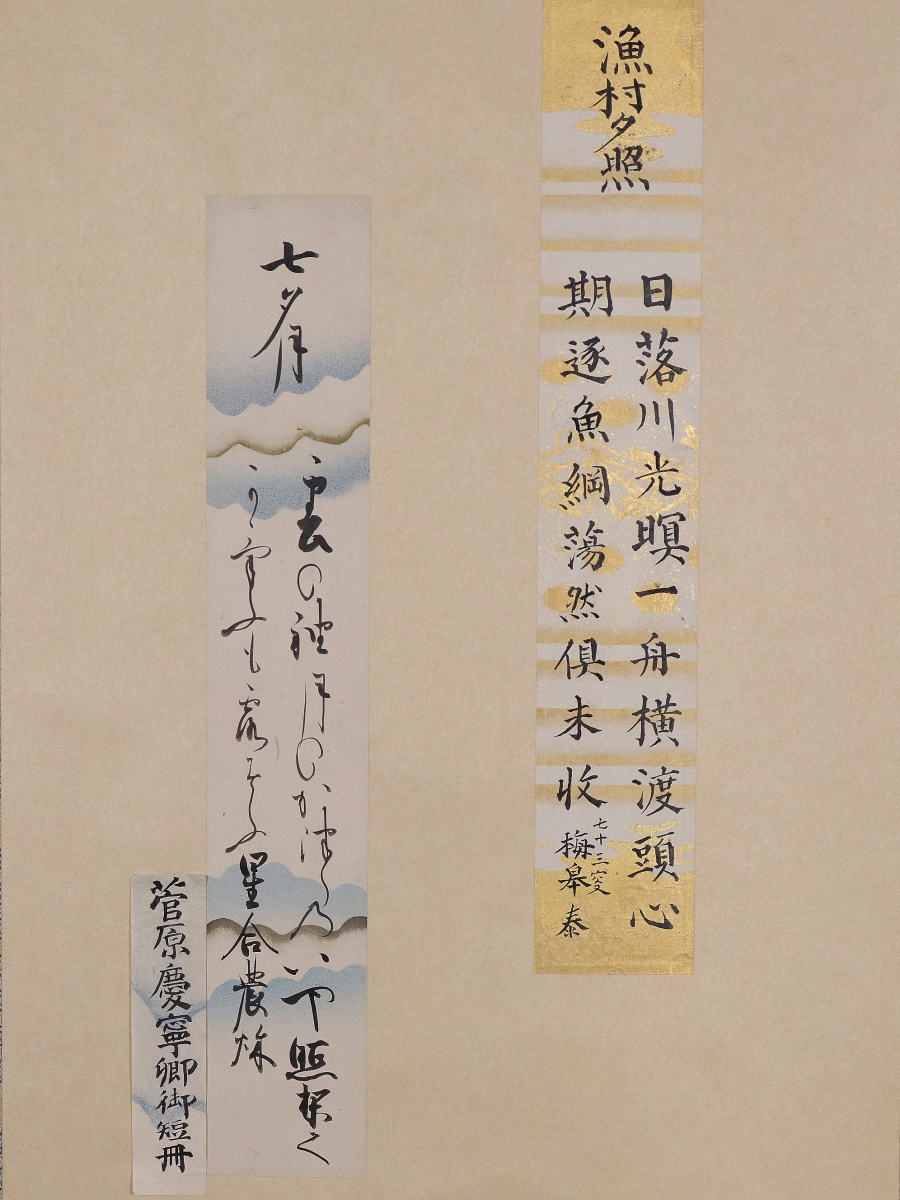 漁村夕照
日落川光暝一舟横渡頭心
期逐魚網蕩然倶未收
七十三叟
梅皋泰
七夕月
雲の袖月のかつらの下照
星合農秌
菅原慶寧卿御短冊